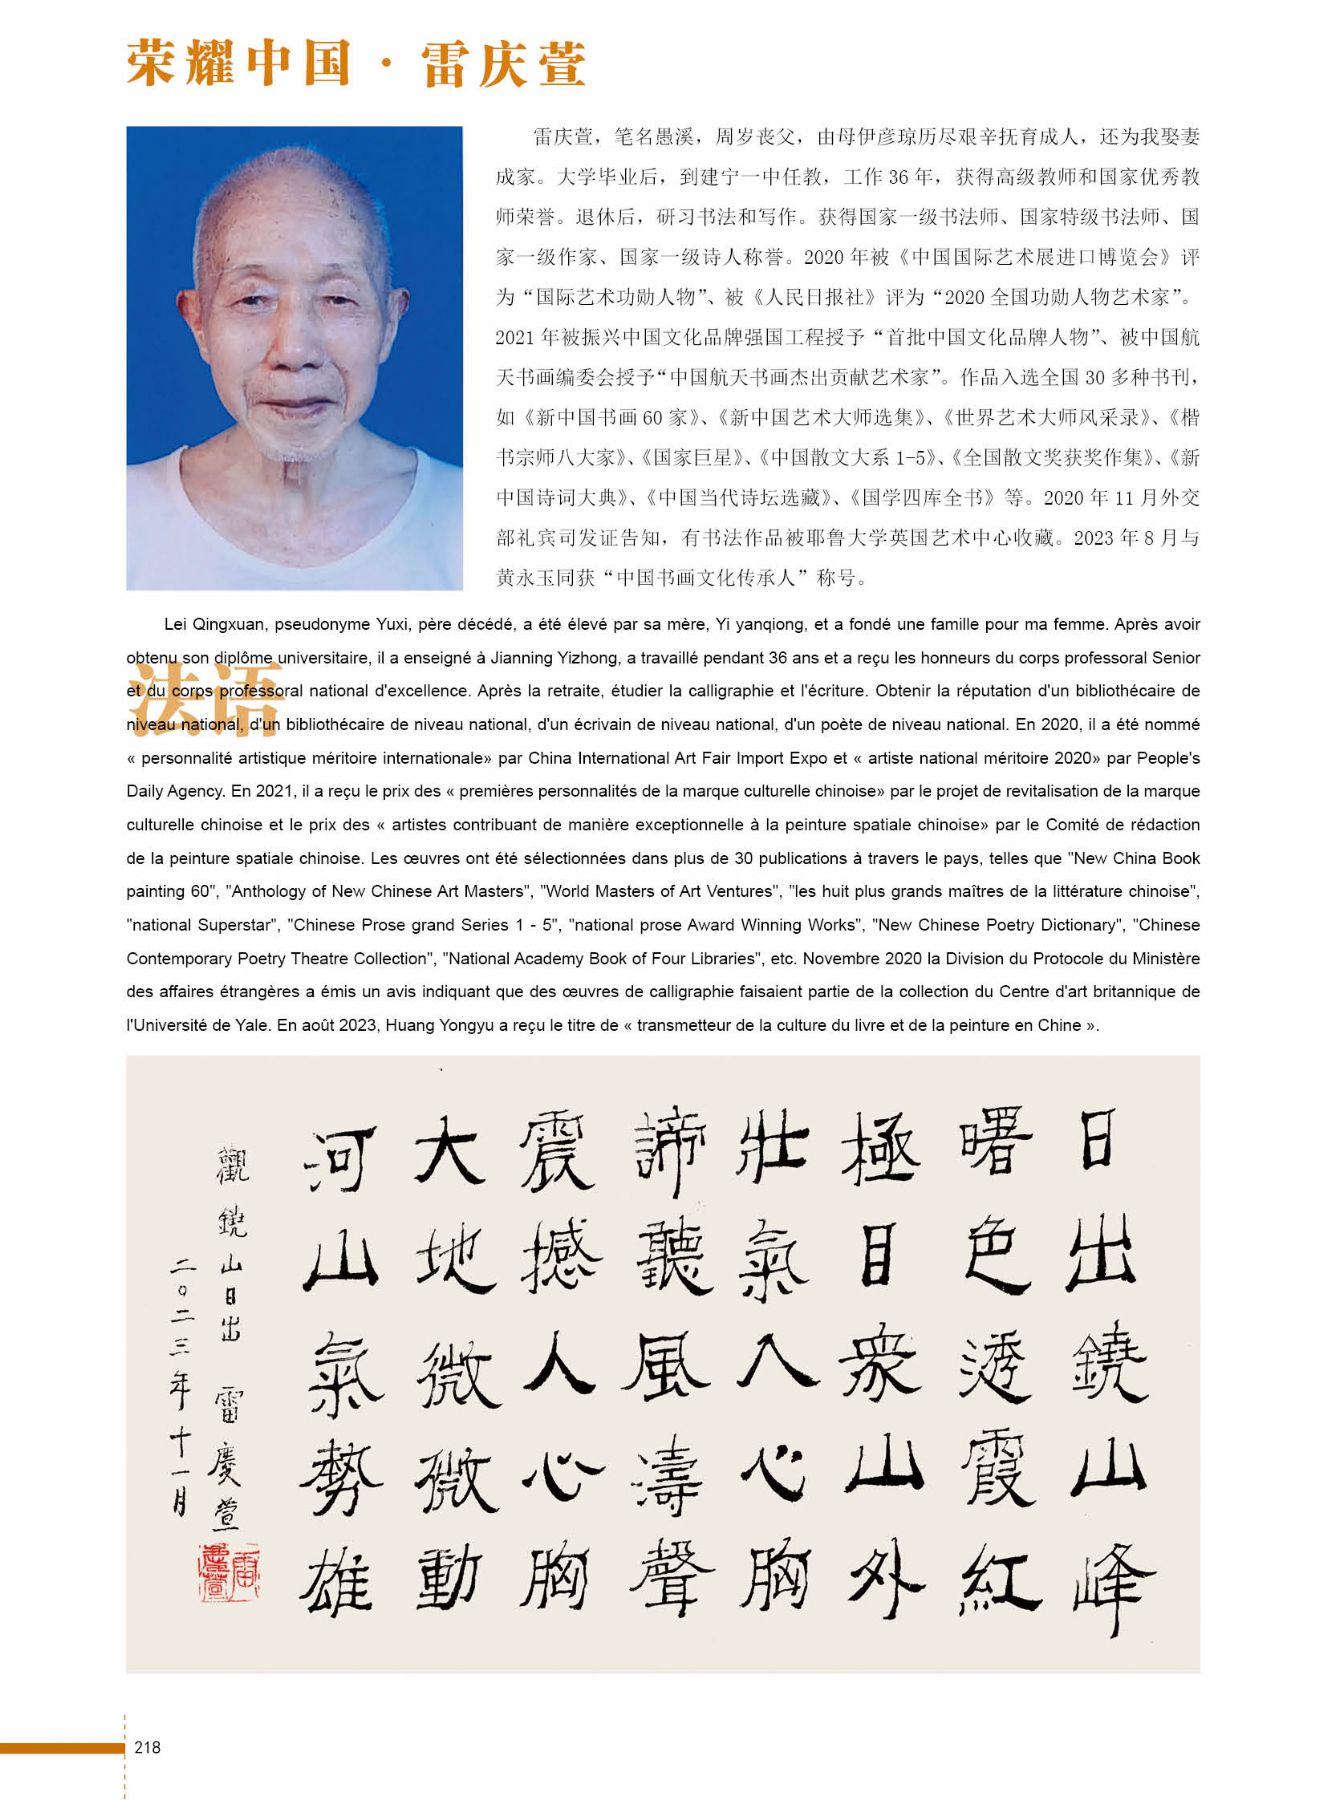 荣耀中国·雷庆萱
雷庆萱，笔名愚溪，周岁丧父，由母伊彦琼历尽艰辛抚育成人，还为我娶妻
成家。大学毕业后，到建宁一中任教，工作 36 年，获得高级教师和国家优秀教
师荣誉。退休后，研习书法和写作。获得国家一级书法师、国家特级书法师、国
家一级作家、国家一级诗人称誉。2020 年被《中国国际艺术展进口博览会》评
为“国际艺术功勋人物”、被《人民日报社》评为“2020 全国功勋人物艺术家”。
2021 年被振兴中国文化品牌强国工程授予“首批中国文化品牌人物”、被中国航
天书画编委会授予“中国航天书画杰出贡献艺术家”。作品入选全国 30 多种书刊，
如《新中国书画 60 家》、《新中国艺术大师选集》、《世界艺术大师风采录》、《楷
书宗师八大家》、《国家巨星》、《中国散文大系 1-5》、《全国散文奖获奖作集》、《新
中国诗词大典》、《中国当代诗坛选藏》、《国学四库全书》等。2020 年 11 月外交
部礼宾司发证告知，有书法作品被耶鲁大学英国艺术中心收藏。2023 年 8 月与
黄永玉同获“中国书画文化传承人”称号。
法语
Lei Qingxuan, pseudonyme Yuxi, père décédé, a été élevé par sa mère, Yi yanqiong, et a fondé une famille pour ma femme. Après avoir
obtenu son diplôme universitaire, il a enseigné à Jianning Yizhong, a travaillé pendant 36 ans et a reçu les honneurs du corps professoral Senior
et du corps professoral national d'excellence. Après la retraite, étudier la calligraphie et l'écriture. Obtenir la réputation d'un bibliothécaire de
niveau national, d'un bibliothécaire de niveau national, d'un écrivain de niveau national, d'un poète de niveau national. En 2020, il a été nommé
« personnalité artistique méritoire internationale» par China International Art Fair Import Expo et « artiste national méritoire 2020» par People's
Daily Agency. En 2021, il a reçu le prix des « premières personnalités de la marque culturelle chinoise» par le projet de revitalisation de la marque
culturelle chinoise et le prix des « artistes contribuant de manière exceptionnelle à la peinture spatiale chinoise» par le Comité de rédaction
de la peinture spatiale chinoise. Les œuvres ont été sélectionnées dans plus de 30 publications à travers le pays, telles que "New China Book
painting 60", "Anthology of New Chinese Art Masters", "World Masters of Art Ventures", "les huit plus grands maîtres de la littérature chinoise",
"national Superstar", "Chinese Prose grand Series 1 - 5", "national prose Award Winning Works", "New Chinese Poetry Dictionary", "Chinese
Contemporary Poetry Theatre Collection", "National Academy Book of Four Libraries", etc. Novembre 2020 la Division du Protocole du Ministère
des affaires étrangères a émis un avis indiquant que des œuvres de calligraphie faisaient partie de la collection du Centre d'art britannique de
l'Université de Yale. En août 2023, Huang Yongyu a reçu le titre de « transmetteur de la culture du livre et de la peinture en Chine ».
日出鐃山峰
曙色透霞紅
極目衆山外
壯氣入心胸
諦聽風濤聲
震撼人心胸
大地微微動
河山氣勢雄
觀鐃山日出 雷慶萱
二〇二三年十一月
雷慶萱
218